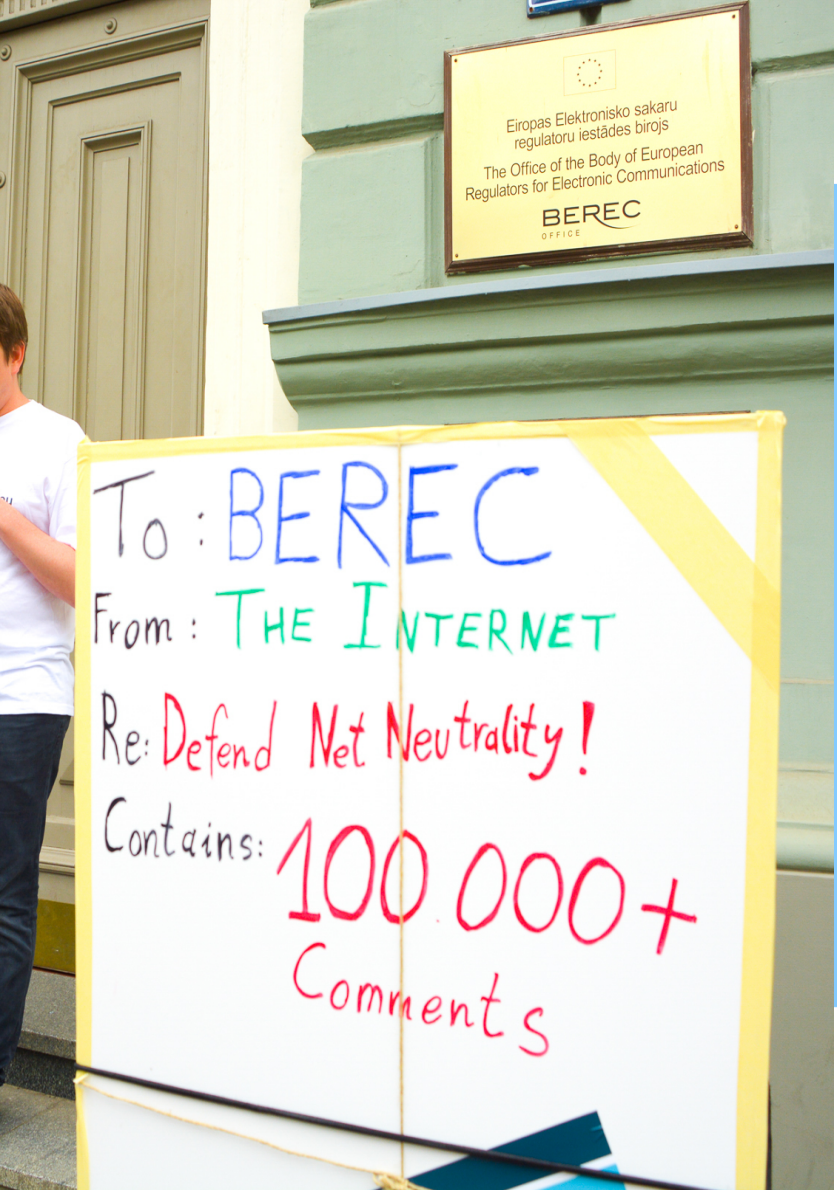 Eiropas Elektronisko sakaru
regulatoru iestādes birojs
The Office of the Body of European
Regulators for Electronic Communications
BEREC
OFFICE
To: BEREC
From: THE INTERNET
Re: Defend Net Neutrality!
Contains: 100.000+
Comments